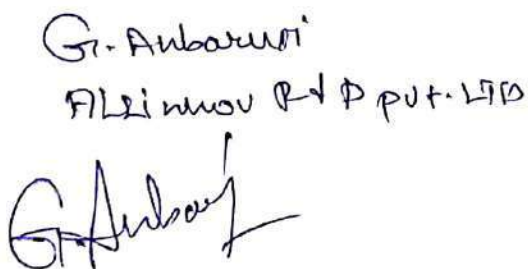 G. Anbarusi
ALZinnov R & D pvt. LTD
G. Anbarusi